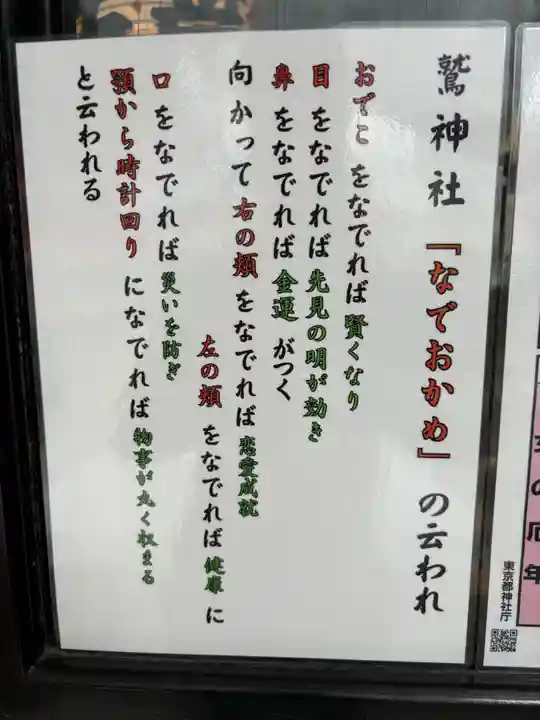 鷲神社『なでおかめ』の云われ
おでこをなでれば賢くなり
目をなでれば先見の明が効き
鼻をなでれば金運がつく
向かって右の頬をなでれば恋愛成就
左の頬をなでれば健康に
口をなでれば災いを防ぎ
顎から時計回りになでれば物事が丸く収まる
と云われる
の厄年
東京都神社庁